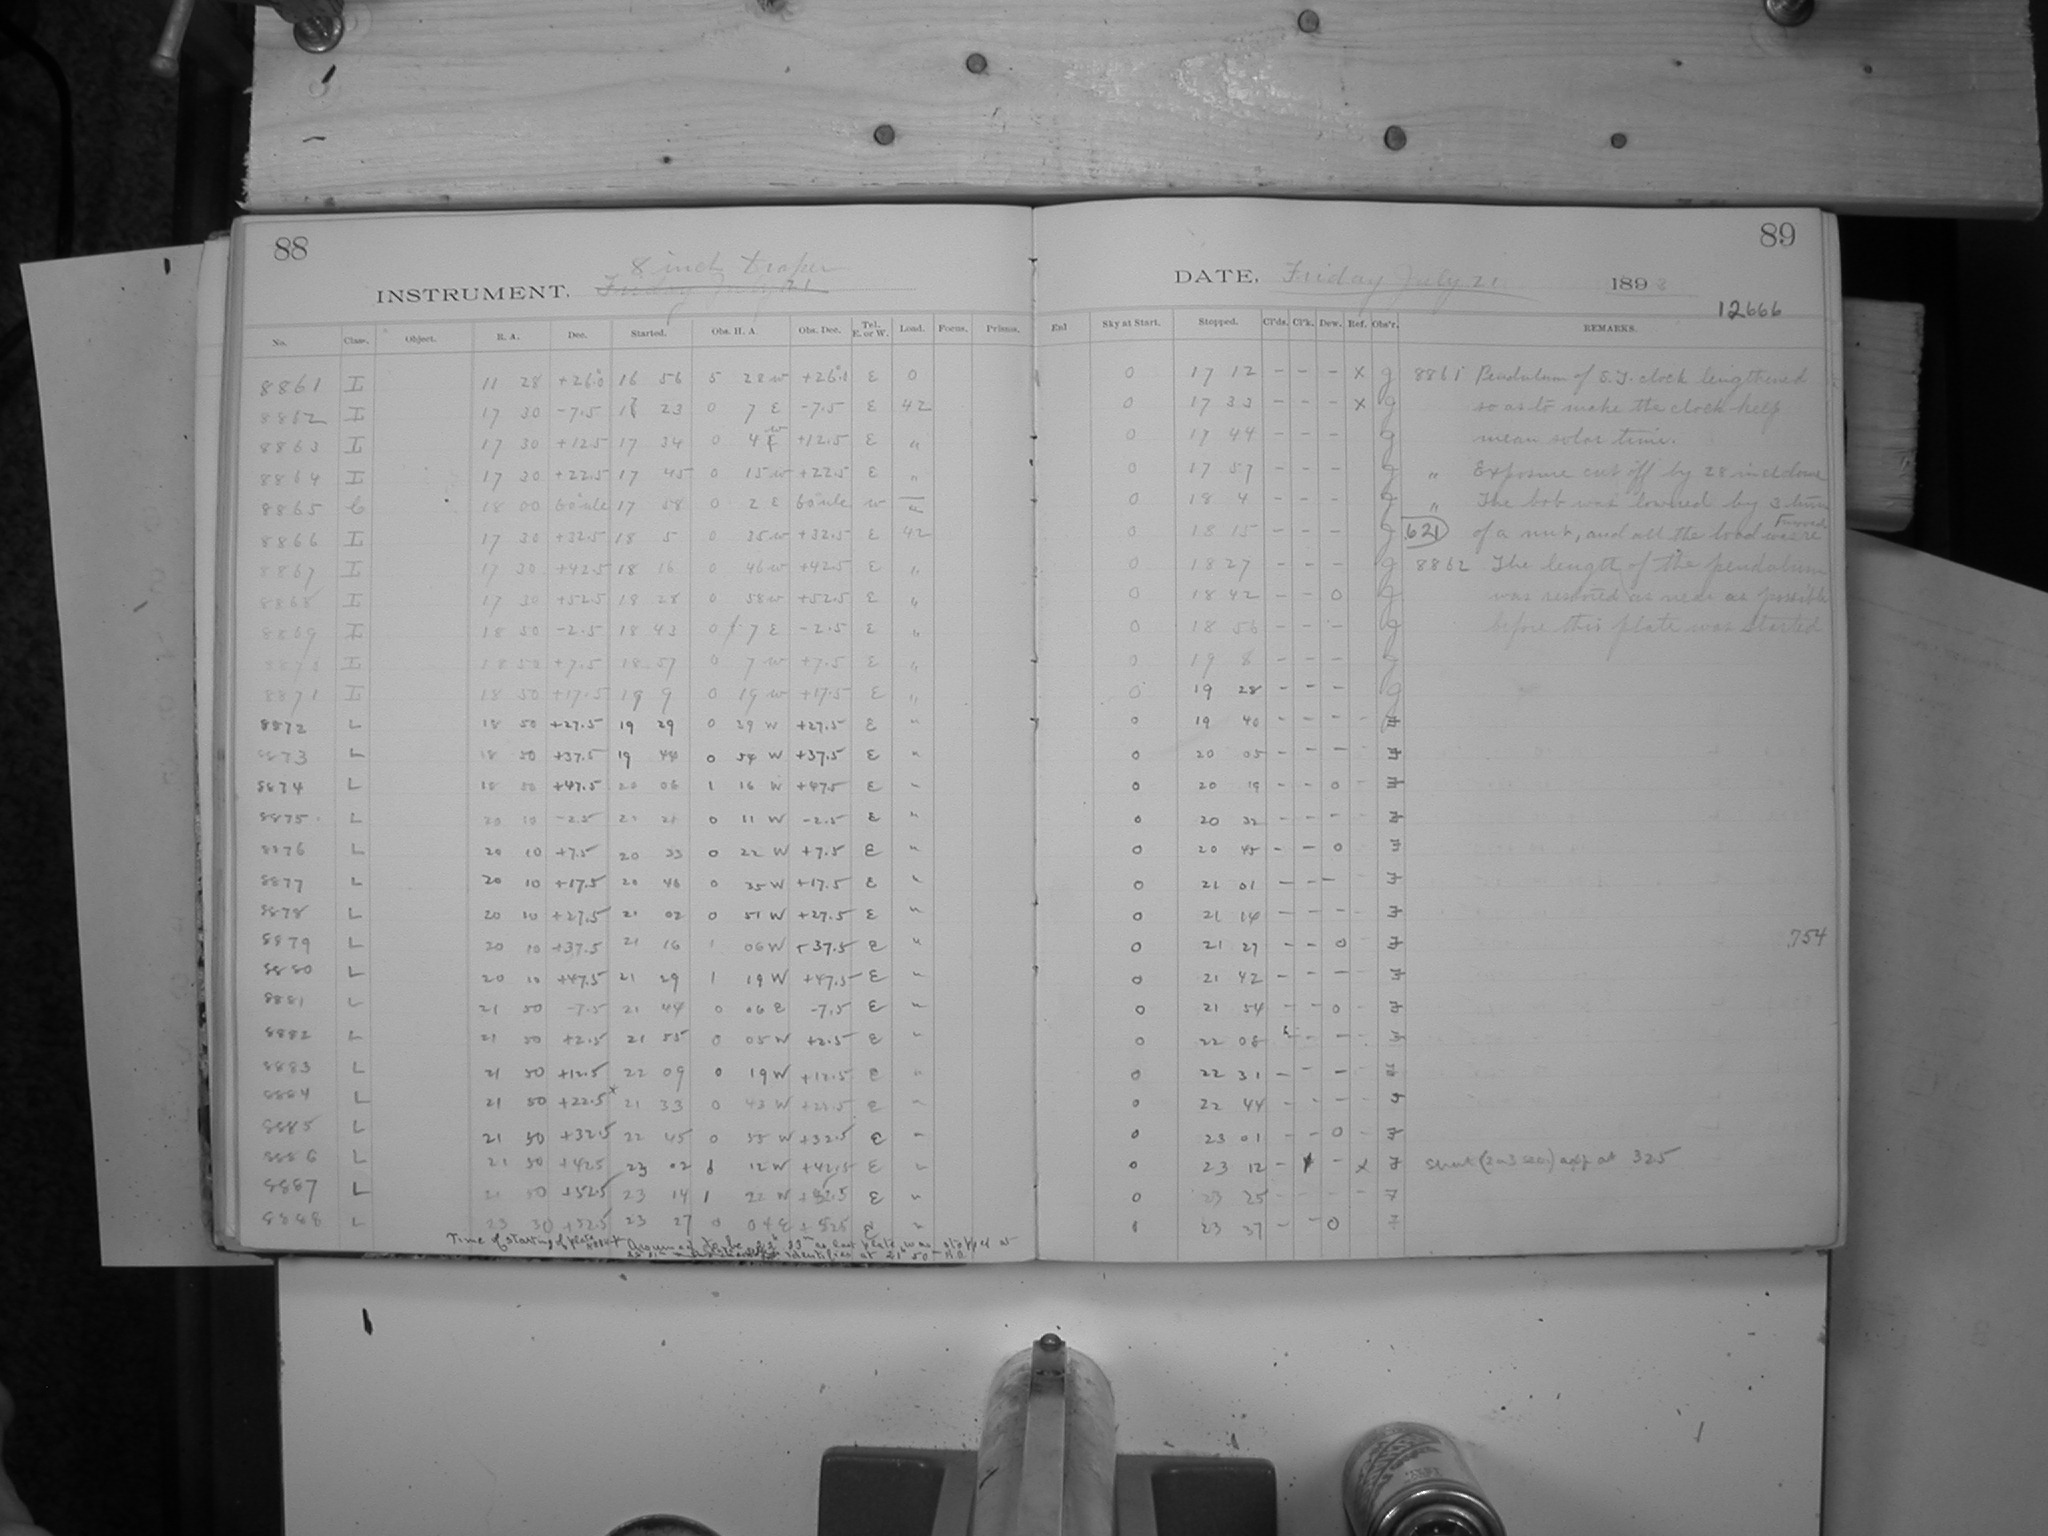 88
8 inch Draper
INSTRUMENT, Friday July 21
No. Class. Object. R. A. Dec. Started. Obs. H. A. Obs. Dec. Tel. E. or W. Load. Focus. Prisms.
8861 L 11 28 +26.0 16 56 5 28 w +26.1 E 0
8862 L 17 30 -7.5 17 23 0 7 E -7.5 E 42
8863 L 17 30 +12.5 17 34 0 4 w +12.5 E "
8864 L 17 30 +22.5 17 45 0 15 w +22.5 E "
8865 C 18 00 to pole 17 58 0 2 E to pole w
8866 L 17 30 +32.5 18 5 0 35 w +32.5 E 42
8867 L 17 30 +42.5 18 16 0 46 w +42.5 E "
8868 L 17 30 +52.5 18 28 0 58 w +52.5 E "
8869 L 18 50 -2.5 18 43 0 7 E -2.5 E "
8870 L 18 50 +7.5 18 57 0 7 w +7.5 E "
8871 L 18 50 +17.5 19 9 0 19 w +17.5 E "
8872 L 18 50 +27.5 19 29 0 39 W +27.5 E "
8873 L 18 50 +37.5 19 44 0 54 W +37.5 E "
8874 L 18 50 +47.5 20 06 1 16 W +47.5 E "
8875 L 20 10 -2.5 20 21 0 11 W -2.5 E "
8876 L 20 10 +7.5 20 33 0 22 W +7.5 E "
8877 L 20 10 +17.5 20 46 0 35 W +17.5 E "
8878 L 20 10 +27.5 21 02 0 51 W +27.5 E "
8879 L 20 10 +37.5 21 16 1 06 W +37.5 E "
8880 L 20 10 +47.5 21 29 1 19 W +47.5 E "
8881 L 21 50 -7.5 21 44 0 06 E -7.5 E "
8882 L 21 50 +2.5 21 55 0 05 W +2.5 E "
8883 L 21 50 +12.5 22 09 0 19 W +12.5 E "
8884 L 21 50 +22.5 x 21 33 0 43 W +22.5 E "
8885 L 21 50 +32.5 22 45 0 55 W +32.5 E "
8886 L 21 50 +42.5 23 02 1 12 W +42.5 E "
8887 L 21 50 +52.5 23 14 1 22 W +52.5 E "
8888 L 23 30 +52.5 23 27 0 04 E +52.5 E "
Time of starting of plate 8884 Assumed to be 22h 33m as last plate was stopped at
identifies at 21h 50m
89
DATE, Friday July 21 1893
12666
Ex'l Sky at Start. Stopped. Cl'ds. Cl'k. Dew. Ref. Obs'r. REMARKS.
0 17 12 - - - x g 8861 Pendulum of S.T. clock lengthened
0 17 33 - - - x g so as to make the clock keep
0 17 44 - - - g mean solar time.
0 17 57 - - - g " Exposure cut off by 28 inch dome
0 18 4 - - - g " The bob was lowered by 3 turns
0 18 15 - - - g 621 of a nut, and all the load was removed
0 18 27 - - - g 8862 The length of the pendulum
0 18 42 - - 0 g was restored as near as possible
0 18 56 - - - g before this plate was started
0 19 8 - - - g
0 19 28 - - - g
0 19 40 - - - - F
0 20 05 - - - - F
0 20 19 - - 0 - F
0 20 32 - - - - F
0 20 45 - - 0 F
0 21 01 - - - F
0 21 14 - - - - F
0 21 27 - - 0 - F 754
0 21 42 - - - - F
0 21 54 - - 0 - F
0 22 08 - - - F
0 22 31 - - - F
0 22 44 - - - - F
0 23 01 - - 0 - F
0 23 12 - - x F short (2 or 3 sec.) exp at 325
0 23 25 - - - - F
0 23 37 - - 0 F